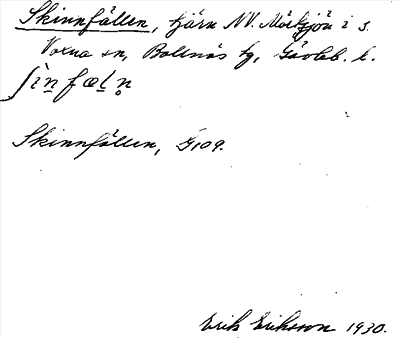 Skinnfällen, tjärn NV. Mörtsjön i s.
Voxna sn, Bollnäs tg, Gävleb. l.
ʃìn fæl n̥
Skinnfällen, G109.
Erik Eriksson 1930.